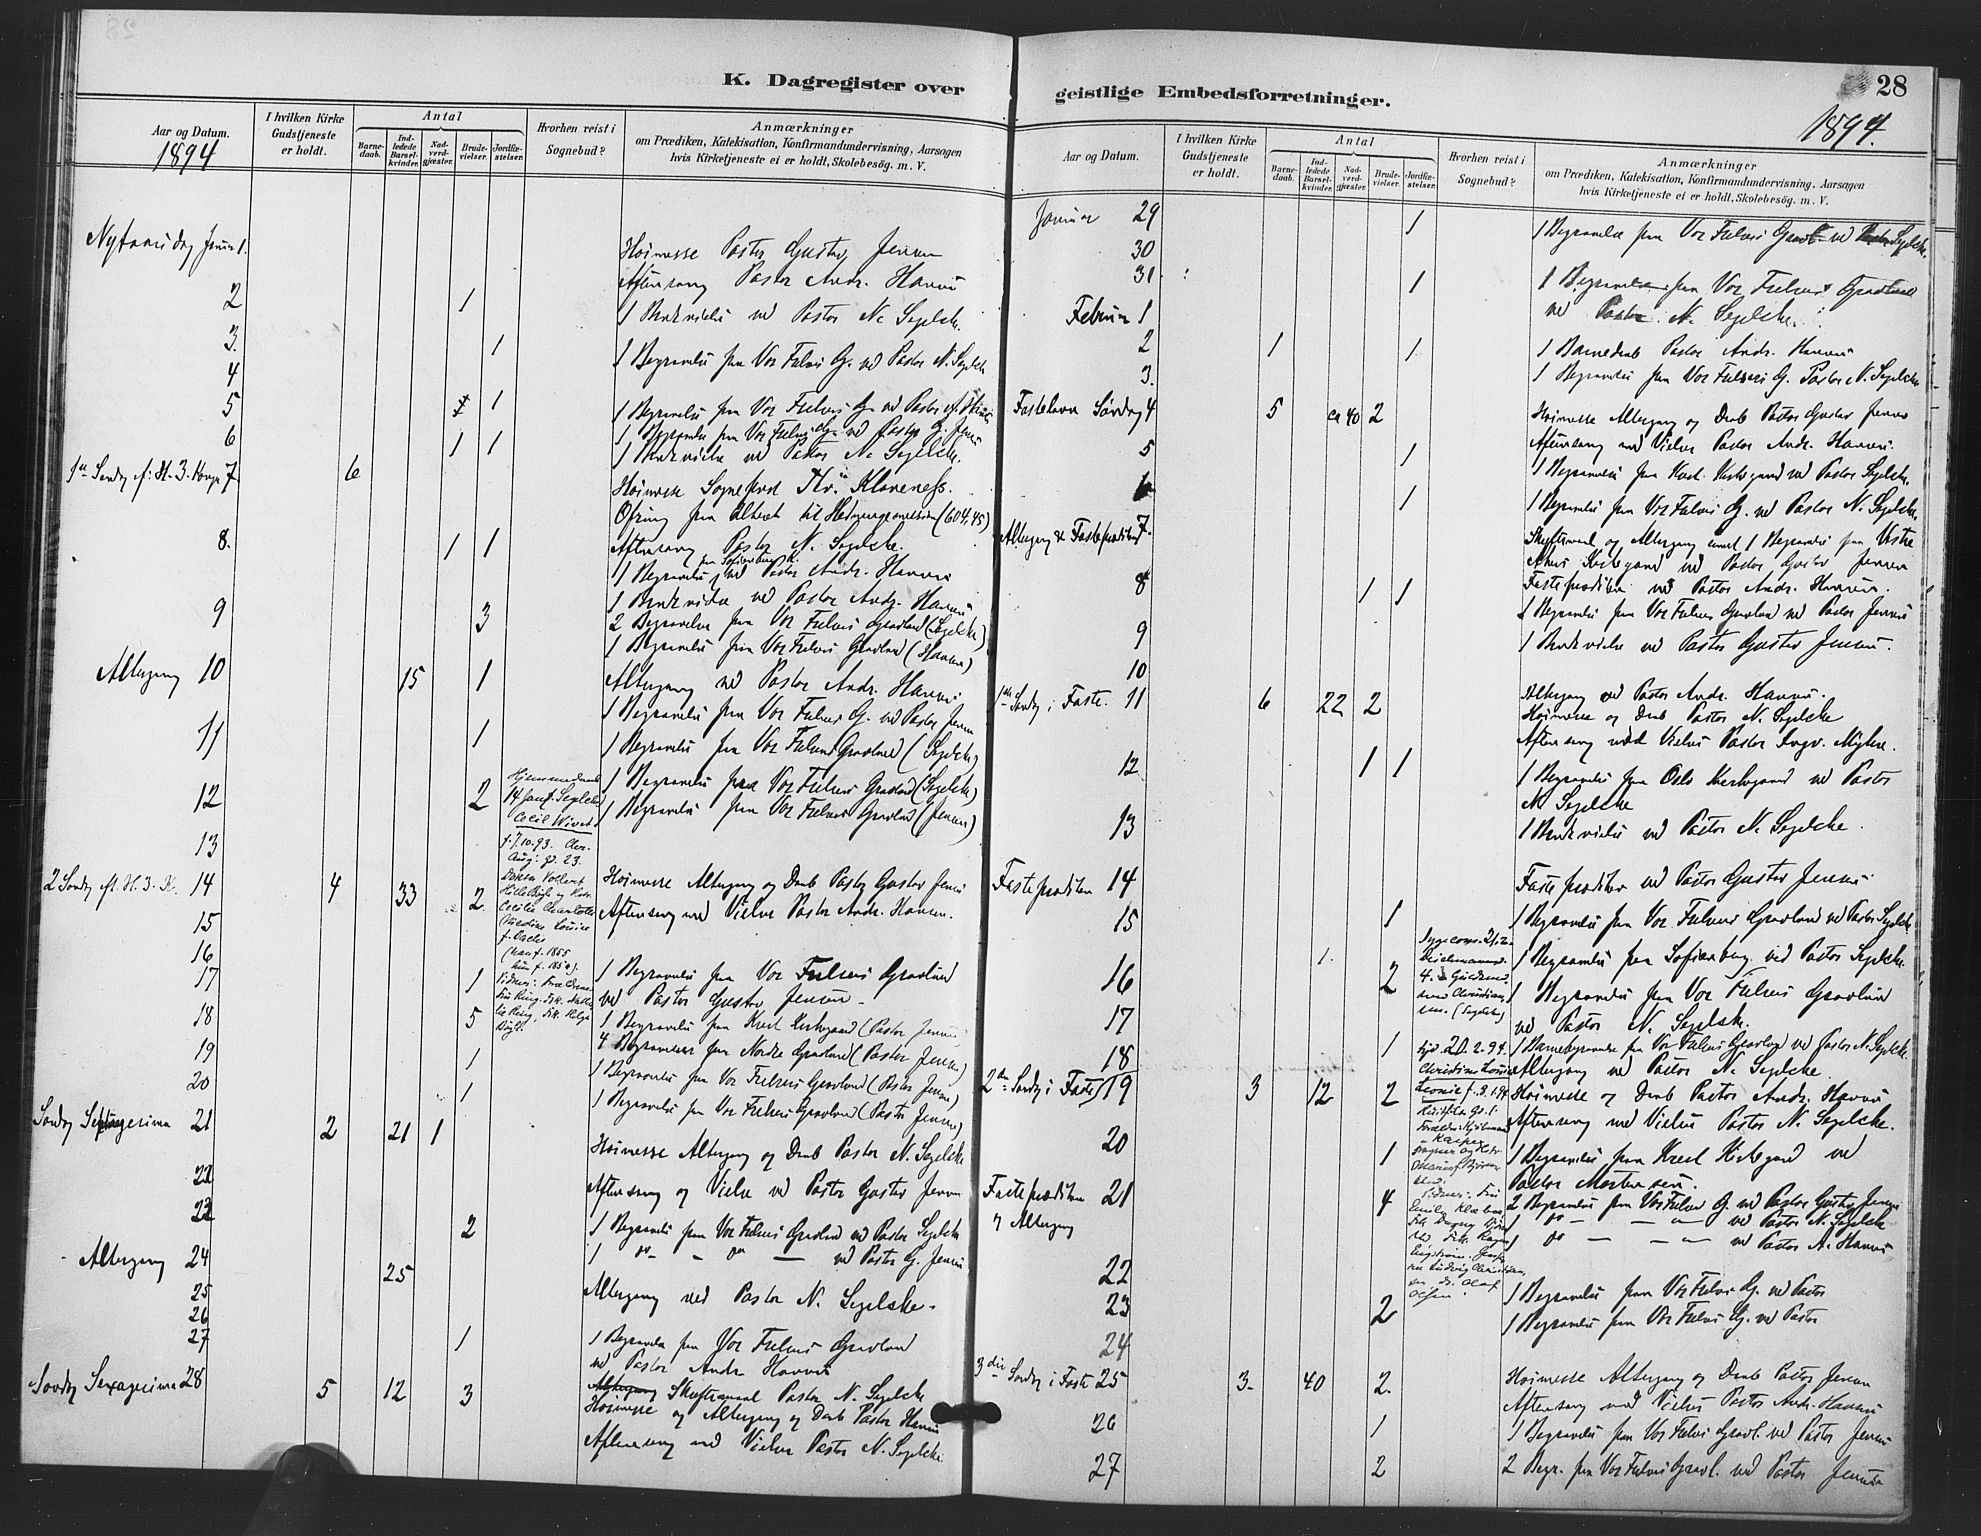 K. Dagregister over
Aar og Datum.
1894
I hvilken Kirke Gudstjeneste er holdt.
Antal
Barnedaab.
Indledede Barselkvinder.
Nadverdgjæster.
Brudevielser.
Jordfæstelser.
Hvorhen reist i Sognebud?
Anmærkninger
om Prædiken, Katekisation, Konfirmandundervisning, Aarsagen
hvis Kirketjeneste ei er holdt, Skolebesøg. m. V.
Nytaarsdag Januar 1.
Høimesse Pastor Gustav Jensen
Aftensang Pastor Andr. Hansen
2 1
1 Brudevielse ved Pastor N. Segelcke.
3. 1
1 Begravelse fra Vor Frelsers G. ved Pastor N. Segelcke
4
5 1
1 Begravelse fra Vor Frelsers G. ved Pastor A. Hansen
1 Begravelse fra Vor Frelsers G. ved Pastor G. Jensen
6 1 1
1 Brudevielse ved Pastor N. Segelcke.
1ste Søndag e. H. 3. Konge 7 6
Høimesse Sogneprest Thv. Klaveness.
Ofring fra Alteret til Hedningemissionen (604,45)
Aftensang Pastor N. Segelcke.
8. 1 1
fra Sofienberg K.
1 Begravelse ved Pastor Andr. Hansen
1 Brudevielse ved Pastor Andr. Hansen
9 3
2 Begravelser fra Vor Frelsers Gravlund (Segelcke)
1 Begravelse fra Vor Frelsers Gravlund (Hansen)
Altergang 10 15 1
Altergang ved Pastor Andr. Hansen.
1 Begravelse fra Vor Frelsers G. ved Pastor Jensen
11 1
1 Begravelse fra Vor Frelsers Gravlund (Segelcke)
12 2
1 Begravelse fra Vor Frelsers Gravlund (Segelcke)
1 Begravelse fra Vor Frelsers Gravlund (Jensen)
Hjemmedaab
14 Jan. Segelcke
Cecil Wivet
f. 7.10.93.
Aug: g. 23.
13
2 Søndag eft. H. 3. K. 14 4 33 2
Høimesse Altergang og Daab Pastor Gustav Jensen
Aftensang med Vielse Pastor Andr. Hansen.
15
16
17 1
1 Begravelse fra Vor Frelsers Gravlund
ved Pastor Gustav Jensen.
18 5
1 Begravelse fra Krist Kirkegaard (Pastor Jensen)
4 Begravelser fra Nordre Gravlund (Pastor Jensen)
19 1
1 Begravelse fra Vor Frelsers Gravlund (Pastor Jensen)
20 1
1 Begravelse fra Vor Frelsers Gravlund (Pastor Jensen)
Søndag Septuagesima 21 2 21 1
Høimesse Altergang og Daab Pastor N. Segelcke
Aftensang og Vielse ved Pastor Gustav Jensen
22
23 2
1 Begravelse fra Vor Frelsers Gravlund ved Pastor Segelcke
1 do - - do - ved Pastor G. Jensen
Altergang 24 25
Altergang ved Pastor N. Segelcke.
25
26
27 1
1 Begravelse fra Vor Frelsers Gravlund
ved Pastor Andr Hansen
Søndag Sexagesima 28 5 12 3
Altergang Skriftemaal Pastor N. Segelcke
Høimesse og Altergang og Daab Pastor Hansen
Aftensang med Vielse Pastor N. Segelcke.
geistlige Embedsforretninger.
28
1894.
Aar og Datum.
I hvilken Kirke Gudstjeneste er holdt.
Antal
Barnedaab.
Indledede Barselkvinder.
Nadverdgjæster.
Brudevielser.
Jordfæstelser.
Hvorhen reist i Sognebud?
Anmærkninger
om Prædiken, Katekisation, Konfirmandundervisning, Aarsagen
hvis Kirketjeneste ei er holdt, Skolebesøg. m. V.
Januar 29 1
1 Begravelse fra Vor Frelsers Gravl. ved Pastor Segelcke.
30
31 1
1 Begravelse fra Vor Frelsers Gravlund
ved Pastor N. Segelcke.
Februar 1
2 1 1
1 Barnedaab Pastor Andr. Hansen
1 Begravelse fra Vor Frelsers G. Pastor N. Segelcke
3.
Fastelavn Søndag 4 5 ca 40 2
Høimesse Altergang og Daab Pastor Gustav Jensen
Aftensang med Vielse Pastor Andr. Hansen.
5 1
1 Begravelse fra Krist. Kirkegaard ved Pastor Segelcke.
6 1
1 Begravelse fra Vor Frelsers G. ved Pastor N. Segelcke.
Altergang & Fasteprædiken 7.
Skriftemaal og Altergang samt 1 Begravelse fra Vestre
Akers Kirkegaard ved Pastor Gustav Jensen
Fasteprædiken ved Pastor Andr. Hansen.
8 1 1
1 Begravelse fra Vor Frelsers Gravlund ved Pastor Jensen
1 Brudevielse ved Pastor Gustav Jensen.
9
10
1ste Søndag i Faste. 11 6 22 2
Altergang ved Pastor Andr. Hansen.
Høimesse og Daab Pastor N. Segelcke
Aftensang med Vielse Pastor Ingv. Myhre.
12 1 1
1 Begravelse fra Oslo Kirkegaard ved Pastor
N. Segelcke
13
1 Brudevielse ved Pastor N. Segelcke.
Fasteprædiken 14
Fasteprædiken ved Pastor Gustav Jensen
15 1
1 Begravelse fra Vor Frelsers Gravlund ved Pastor Segelcke
16 1. 2
1 Begravelse fra Sofienberg ved Pastor Segelcke.
1 Begravelse fra Vor Frelsers Gravlund
ved Pastor N. Segelcke.
17
18 1
1 Barnebegravelse fra Vor Frelsers Gravlund ved Pastor N. Segelcke.
Altergang ved Pastor N. Segelcke.
2den Søndag i Faste 19 3 12 2
Høimesse og Daab Pastor Andr. Hansen
Aftensang med Vielse Pastor N. Segelcke.
20 1
1 Begravelse fra Krist Kirkegaard ved
Pastor Mortensen.
Fasteprædiken 21 4
& Altergang
2 Begravelse fra Vor Frelsers G. ved Pastor Gustav Jensen
1 do - - - ved Pastor N. Segelcke
1 do - - - ved Pastor A. Hansen
22
1 Begravelse fra Vor Frelsers G. ved Pastor
23 2
1 Begravelse fra Vor Frelsers G. ved Pastor
24
3die Søndag i Faste 25 3. 40 2.
Høimesse Altergang og Daab Pastor Jensen
Aftensang med Vielse Pastor Andr. Hansen
26 1
1 Begravelse fra Vor Frelsers Gravl. ved Pastor Jensen
27 2
2 Begr. fra Vor Frelsers Gravl. ved Pastor Jensen